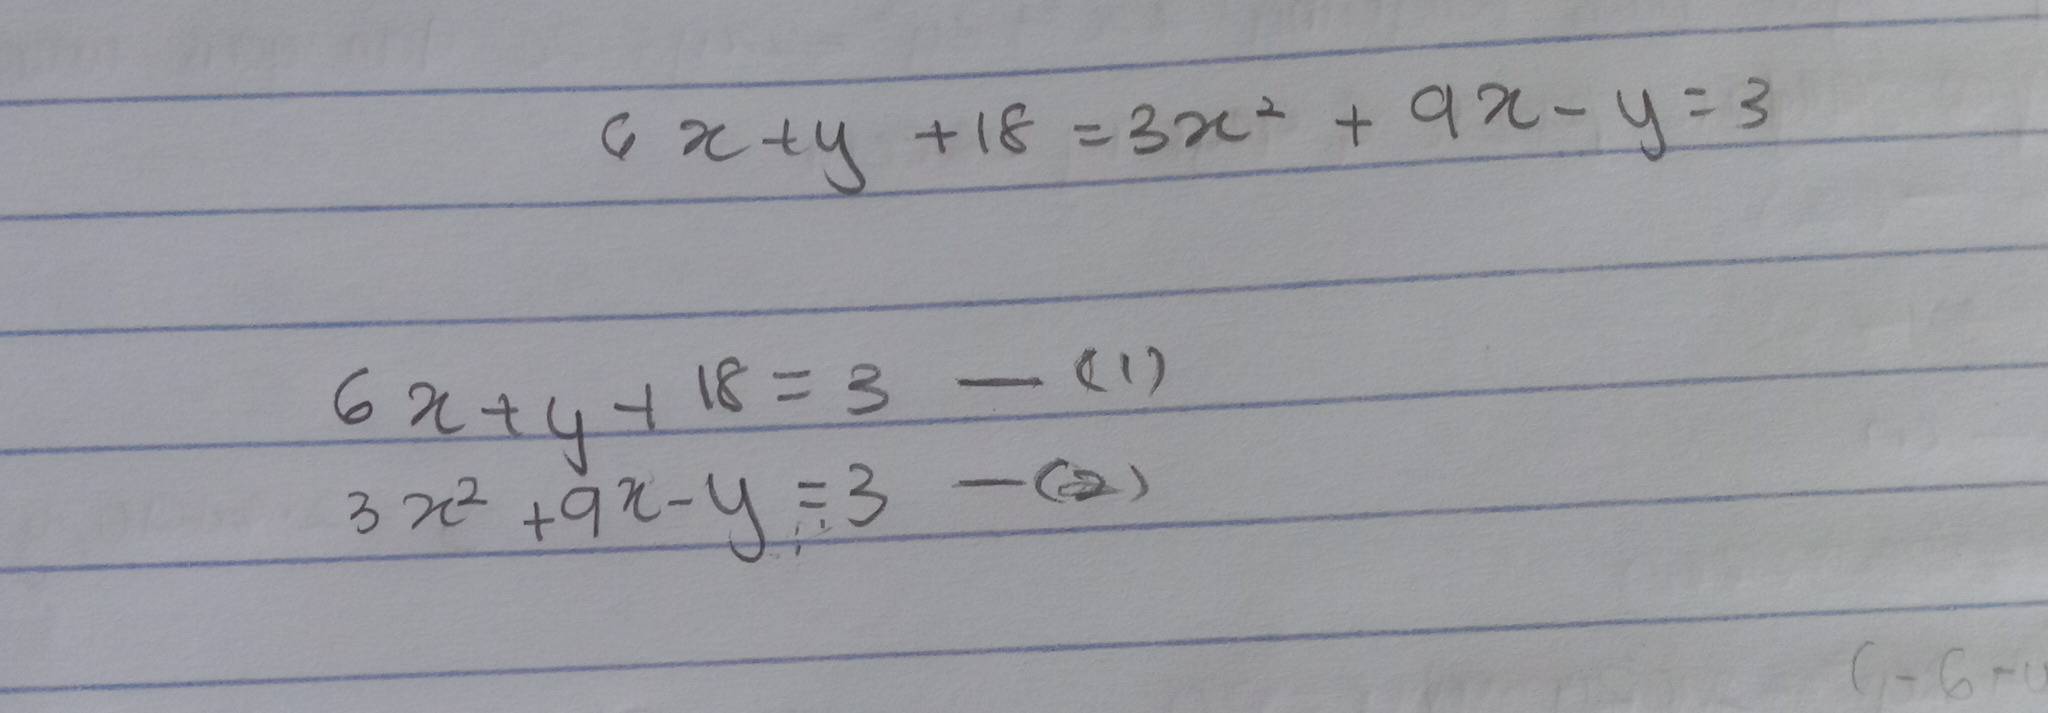 6x+y+18=3x²+9x-y=3
6x+y+18=3 — (1)
3x²+9x-y=3 — (2)